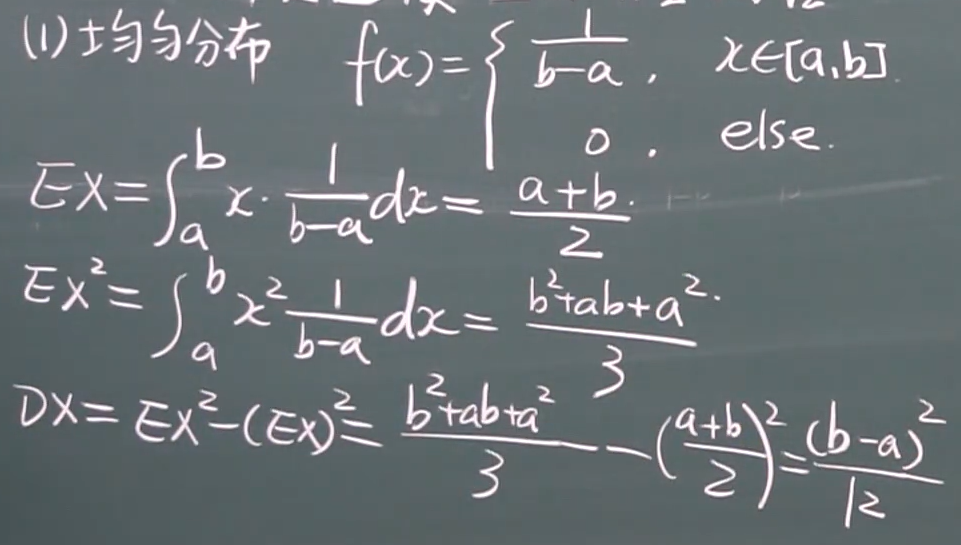 (1) 均匀分布 f(x) = { 1/(b-a), x∈[a,b].
0, else.
EX = ∫_a^b x · 1/(b-a) dx = (a+b)/2.
EX² = ∫_a^b x² 1/(b-a) dx = (b²+ab+a²)/3.
DX = EX² - (EX)² = (b²+ab+a²)/3 - ((a+b)/2)² = (b-a)²/12